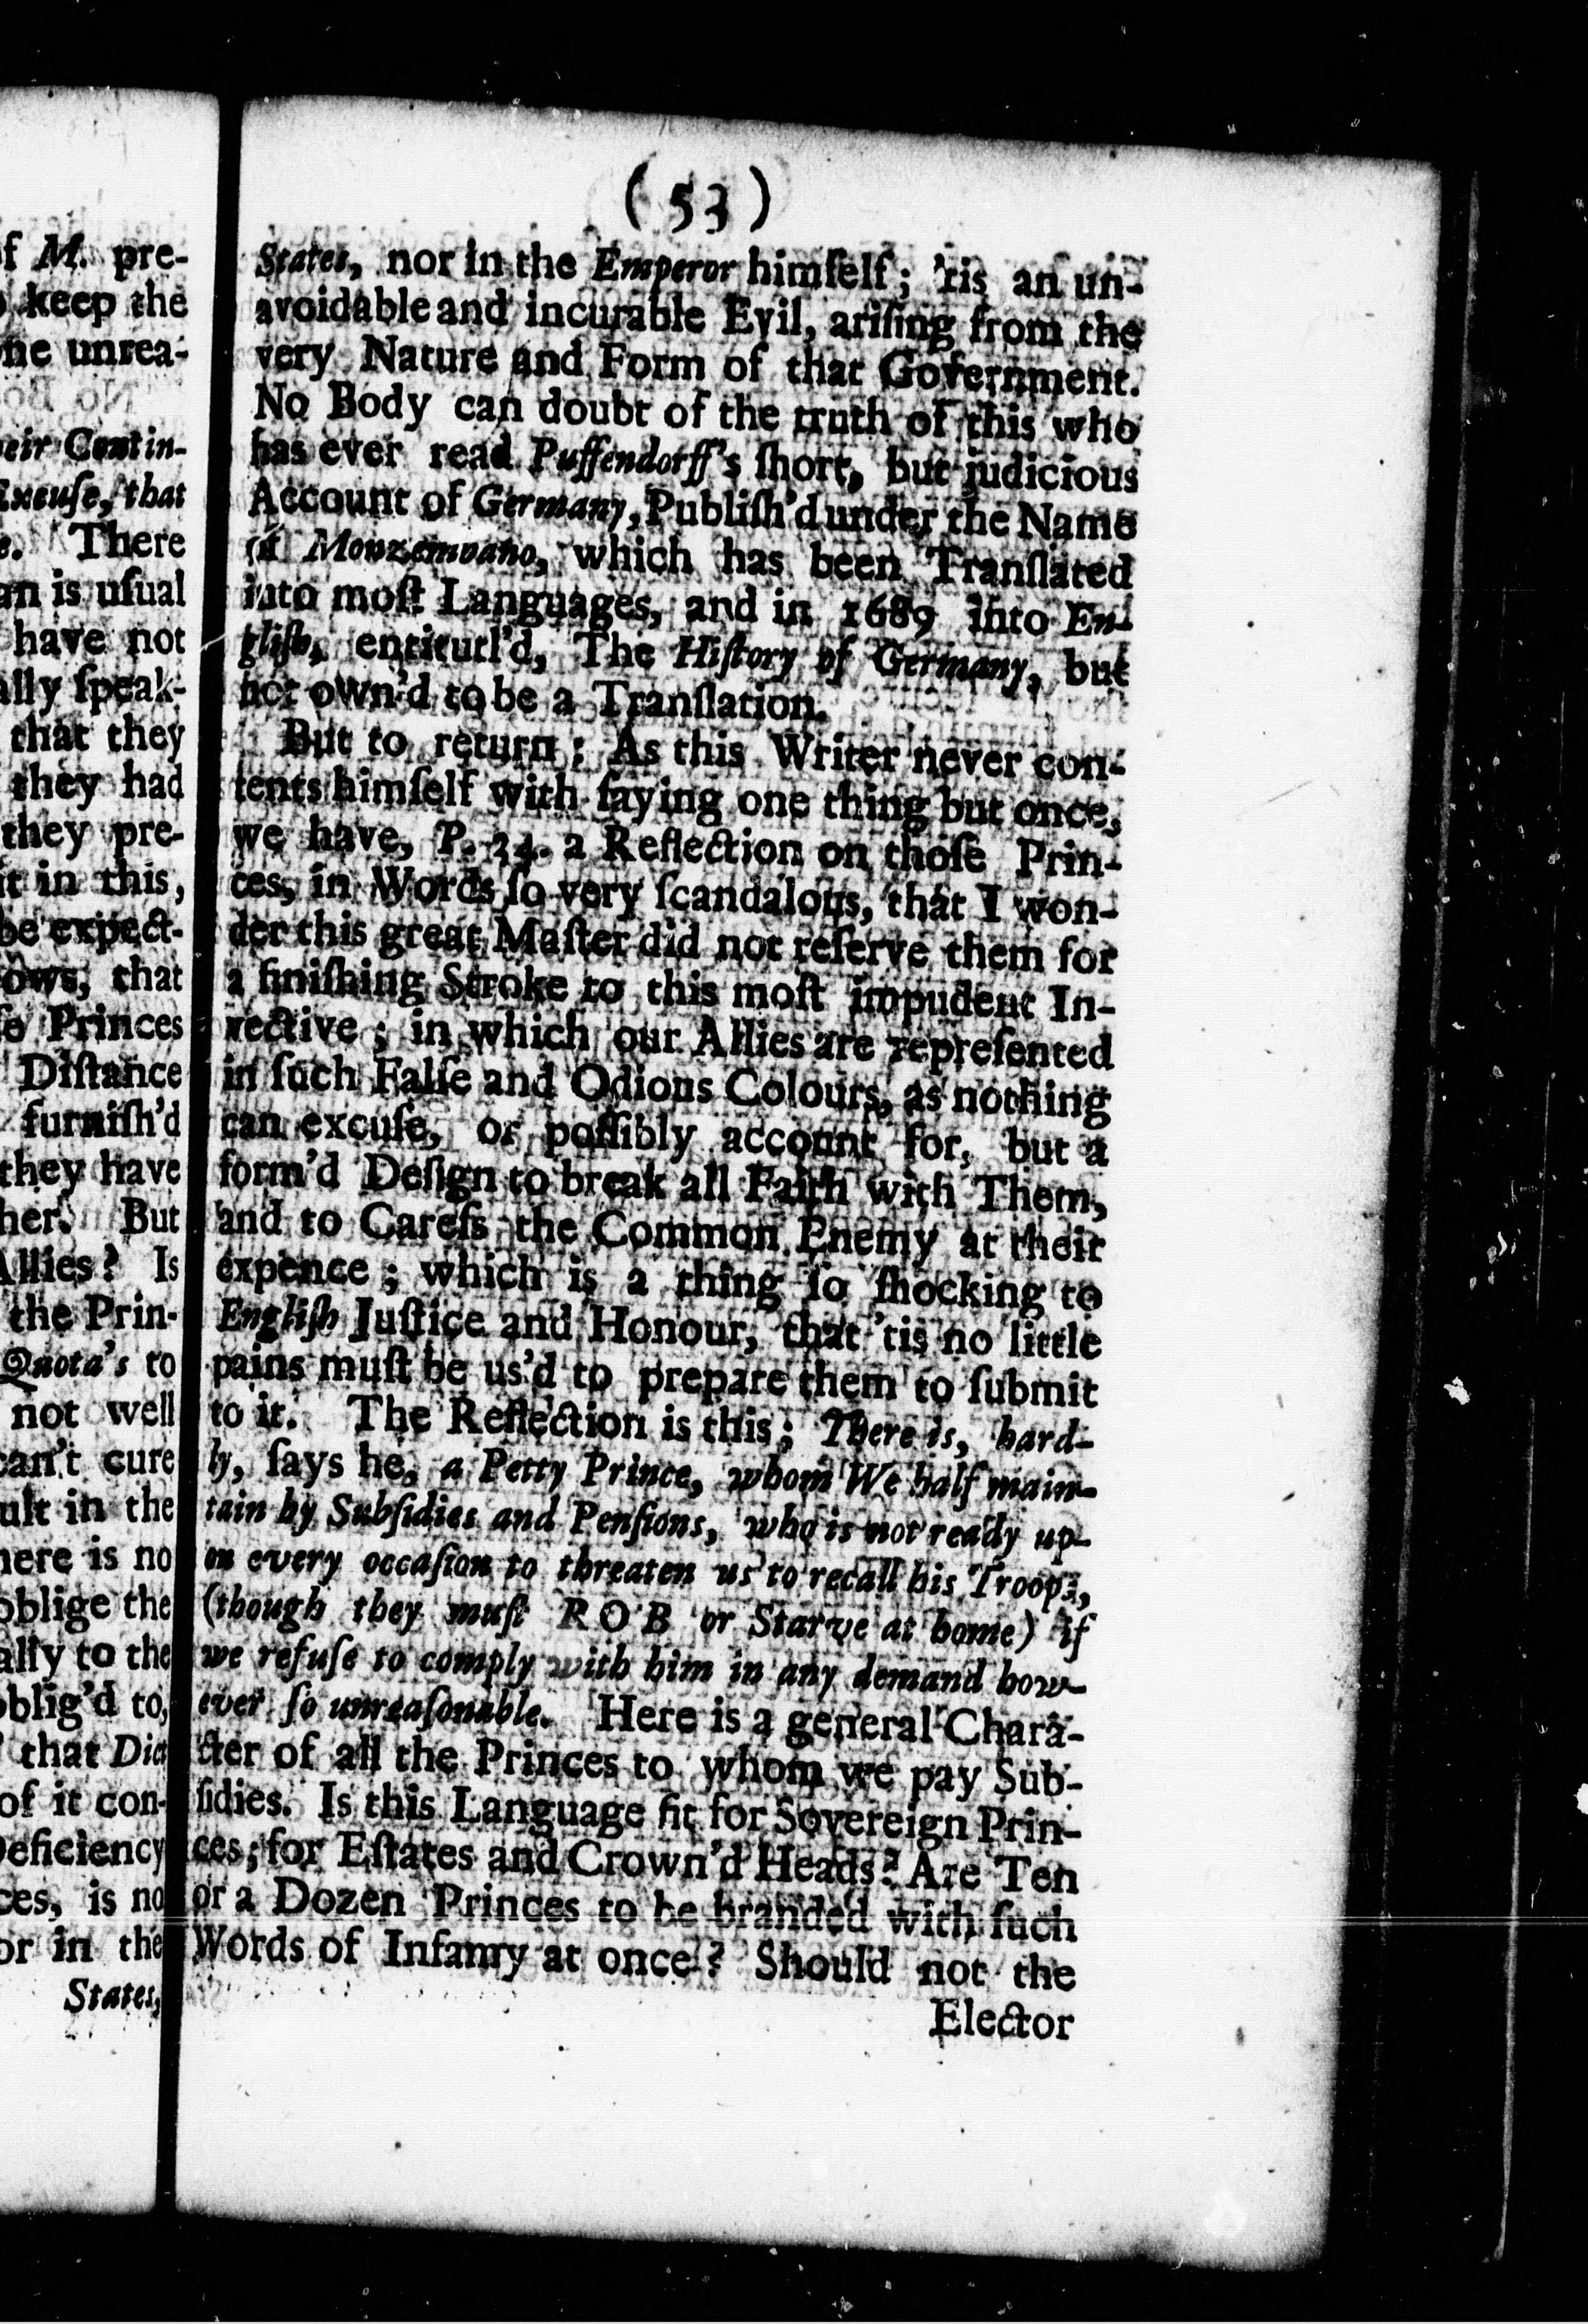 f M. pre-
keep the
ne unrea-
eir Contin-
Excuſe, that
e. There
an is uſual
have not
ally ſpeak-
that they
they had
they pre-
it in this,
be expect-
ows, that
ſe Princes
Diſtance
furniſh'd
they have
her. But
Allies? Is
the Prin-
Quota's to
not well
can't cure
ult in the
here is no
oblige the
ally to the
oblig'd to,
that Dia
of it con-
Deficiency
ces, is no
or in the
States,
(53)
States, nor in the Emperor himſelf; 'tis an un-
avoidable and incurable Evil, ariſing from the
very Nature and Form of that Government.
No Body can doubt of the truth of this who
has ever read Puffendorff's ſhort, but judicious
Account of Germany, Publiſh'd under the Name
of Monzembano, which has been Tranſlated
into moſt Languages, and in 1689 into En-
gliſh, entitutl'd, The Hiſtory of Germany, but
not own'd to be a Tranſlation.
But to return: As this Writer never con-
tents himſelf with ſaying one thing but once,
we have, P. 34. a Reflection on thoſe Prin-
ces, in Words ſo very ſcandalous, that I won-
der this great Maſter did not reſerve them for
a finiſhing Stroke to this moſt impudent In-
vective; in which our Allies are repreſented
in ſuch Falſe and Odious Colours, as nothing
can excuſe, or poſſibly account for, but a
form'd Deſign to break all Faith with Them,
and to Careſs the Common Enemy at their
expence; which is a thing ſo ſhocking to
Engliſh Juſtice and Honour, that 'tis no little
pains muſt be us'd to prepare them to ſubmit
to it. The Reflection is this; There is, hard-
ly, ſays he, a Petty Prince, whom We half main-
tain by Subſidies and Penſions, who is not ready up-
on every occaſion to threaten us to recall his Troops,
(though they muſt ROB or Starve at home) if
we refuſe to comply with him in any demand how-
ever ſo unreaſonable. Here is a general Chara-
cter of all the Princes to whom we pay Sub-
ſidies. Is this Language fit for Sovereign Prin-
ces; for Eſtates and Crown'd Heads? Are Ten
or a Dozen Princes to be branded with ſuch
Words of Infamy at once? Should not the
Elector